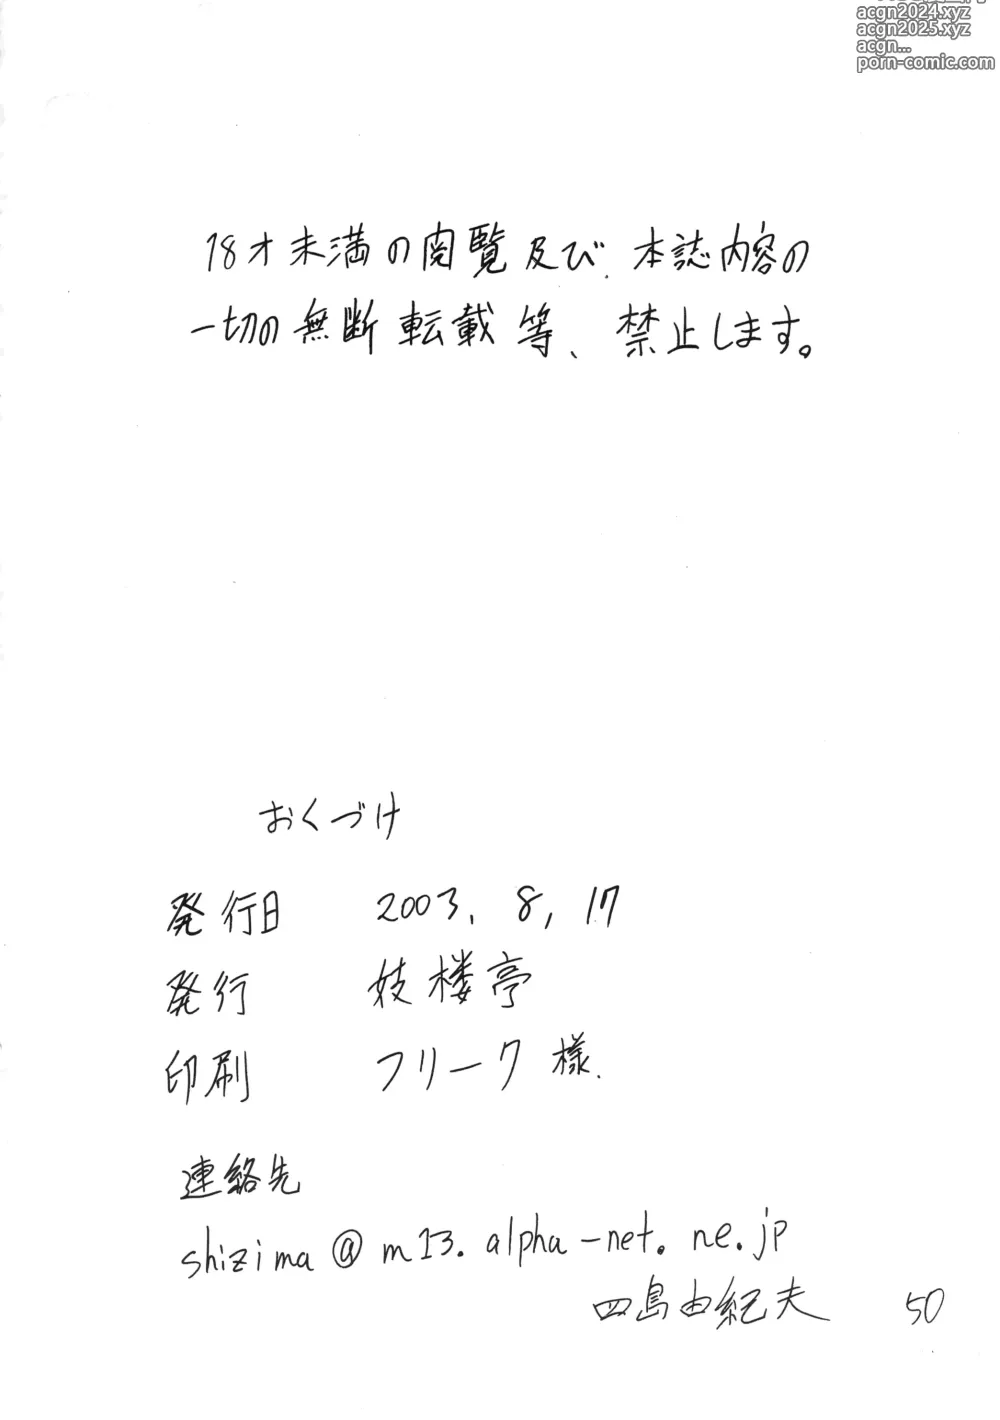 acgn2024.xyz
acgn2025.xyz
acgn...
porn-comic.com
18才未満の閲覧及び、本誌内容の
一切の無断転載等、禁止します。
おくづけ
発行日 2003. 8, 17
発行 妓楼亭
印刷 フリーク様.
連絡先
shizima@m13.alpha-net.ne.jp
四島由紀夫
50